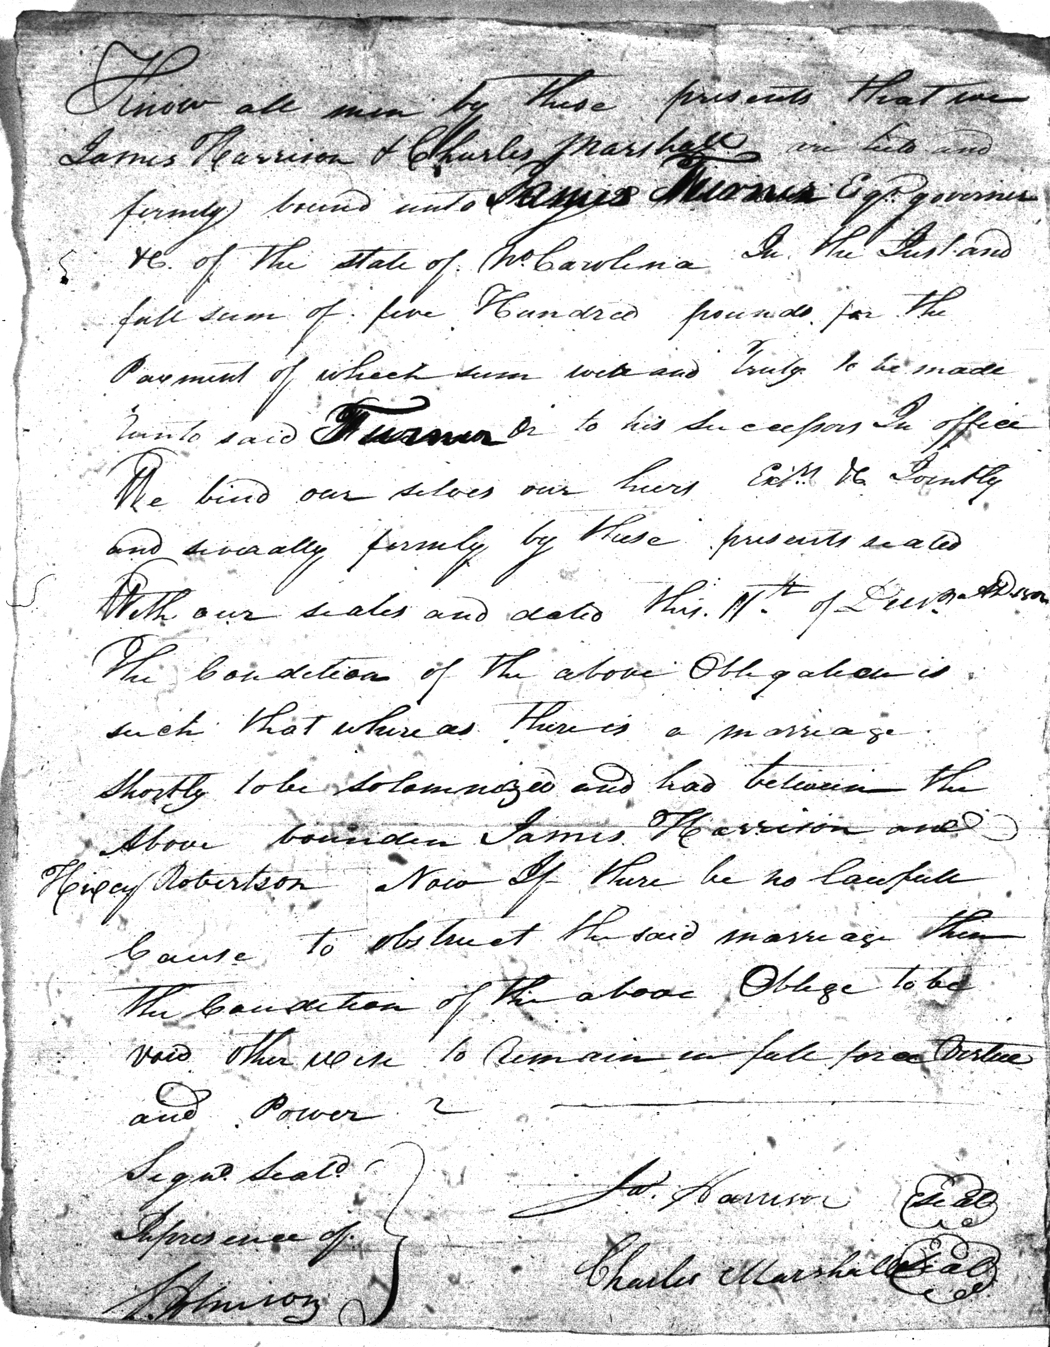 Know all men by these presents that we
James Harrison & Charles Marshall are held and
firmly bound unto James Turner Esqr. governer
&C. of the state of No. Carolina In the Just and
full sum of five Hundred pounds for the
Payment of which sum well and Truly to be made
unto said Turner Or to his Successors In office
We bind our selves our heirs Exrs. &C Jointly
and severally firmly by these presents sealed
With our seales and dated this. 11th of
The Condition of the above Obligation is
such that where as there is a marriage
Shortly to be solemnized and had between the
Above bounden James Harrison and
Robertson Now If there be no lawfull
Cause to obstruct the said marriage then
the Condition of the above Oblige to be
void other wise to Remain in full force Virtue
and Power
Signd. Seald.
In presence of
Js. Harrison Seal
Charles Marshall Seal
Johnson